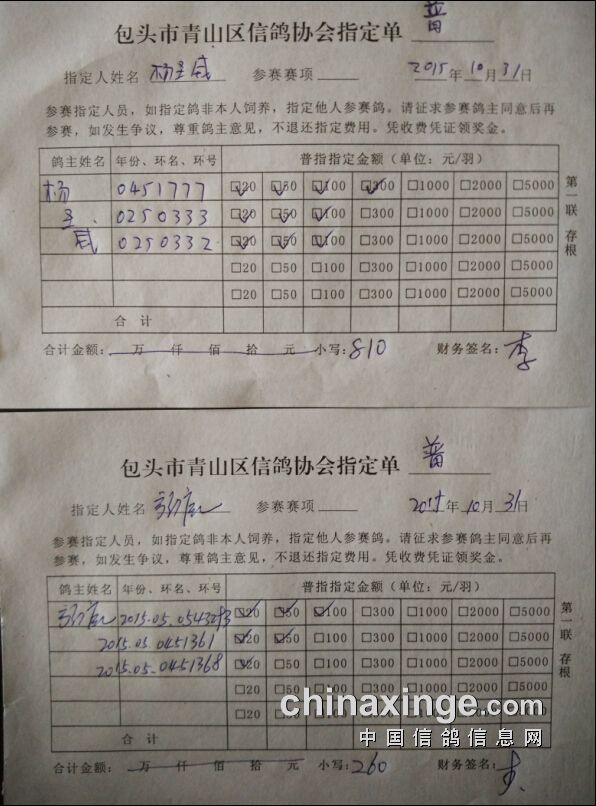 包头市青山区信鸽协会指定单 普
指定人姓名 杨呈威 参赛赛项 2015年10月31日
参赛指定人员,如指定鸽非本人饲养,指定他人参赛鸽。请征求参赛鸽主同意后再
参赛,如发生争议,尊重鸽主意见,不退还指定费用。凭收费凭证领奖金。
鸽主姓名 年份、环名、环号 普指指定金额(单位:元/羽)
杨 0451777 ☑20 ☑50 ☑100 ☑300 □1000 □2000 □5000
呈 0250333 ☑20 ☑50 ☑100 □300 □1000 □2000 □5000
威 0250332 ☑20 ☑50 ☑100 □300 □1000 □2000 □5000
□20 □50 □100 □300 □1000 □2000 □5000
□20 □50 □100 □300 □1000 □2000 □5000
合 计
第一联 存根
合计金额: 万 仟 佰 拾 元 小写:810 财务签名:李
包头市青山区信鸽协会指定单 普
指定人姓名 参赛赛项 2015年10月31日
参赛指定人员,如指定鸽非本人饲养,指定他人参赛鸽。请征求参赛鸽主同意后再
参赛,如发生争议,尊重鸽主意见,不退还指定费用。凭收费凭证领奖金。
鸽主姓名 年份、环名、环号 普指指定金额(单位:元/羽)
☑20 ☑50 ☑100 □300 □1000 □2000 □5000
2015.05.0451361 ☑20 ☑50 □100 □300 □1000 □2000 □5000
2015.05.0451368 ☑20 □50 □100 □300 □1000 □2000 □5000
□20 □50 □100 □300 □1000 □2000 □5000
□20
合 计
第一联 存根
合计金额: 万 仟 佰 拾 元 小写:260 财务签名:
chinaxinge.com
中国信鸽信息网